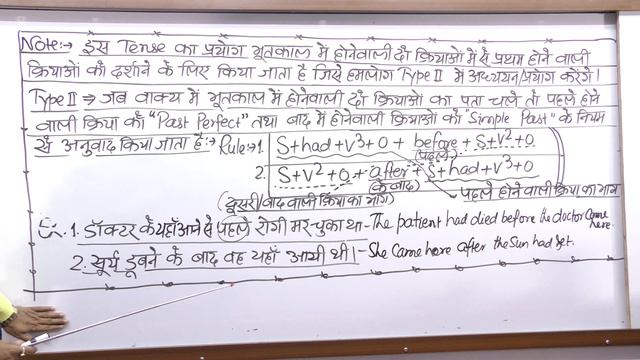 Note:→ इस Tense का प्रयोग भूतकाल में होनेवाली दो क्रियाओं में से प्रथम होने वाली
क्रियाओं को दर्शाने के लिए किया जाता है जिसे हमलोग Type II में अध्ययन/प्रयोग करेंगे।
Type II ⇒ जब वाक्य में भूतकाल में होनेवाली दो क्रियाओं का पता चले तो पहले होने
वाली क्रिया का "Past Perfect" तथा बाद में होनेवाली क्रियाओं को "Simple Past" के नियम
से अनुवाद किया जाता है:→ Rule:→ 1. S+had+V³+O + before + S+V²+O
(पहले)
2. S+V²+O + after + S+had+V³+O
(के बाद)
(दूसरी/बाद वाली क्रिया का भाग) पहले होने वाली क्रिया का भाग
Ex: 1. डॉक्टर के यहाँ आने से पहले रोगी मर चुका था - The patient had died before the doctor came
here.
2. सूर्य डूबने के बाद वह यहाँ आयी थी।- She came here after the Sun had set.